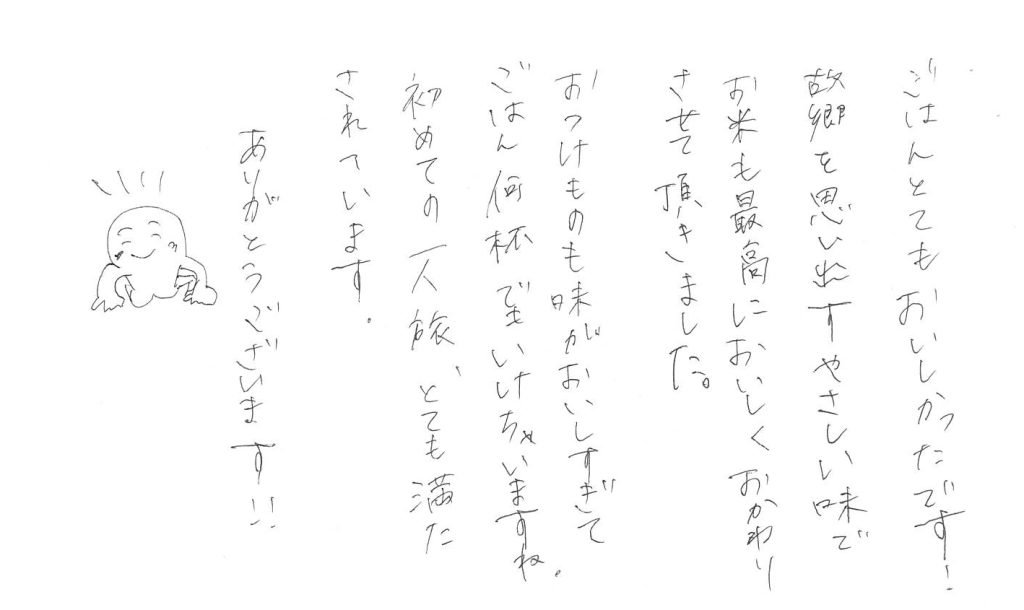 ごはんとてもおいしかったです！
故郷を思い出すやさしい味で
お米も最高においしくおかわり
させて頂きました。
おつけものも味がおいしすぎて
ごはん何杯でもいけちゃいますね.
初めての一人旅、とても満た
されています.
ありがとうございます!!